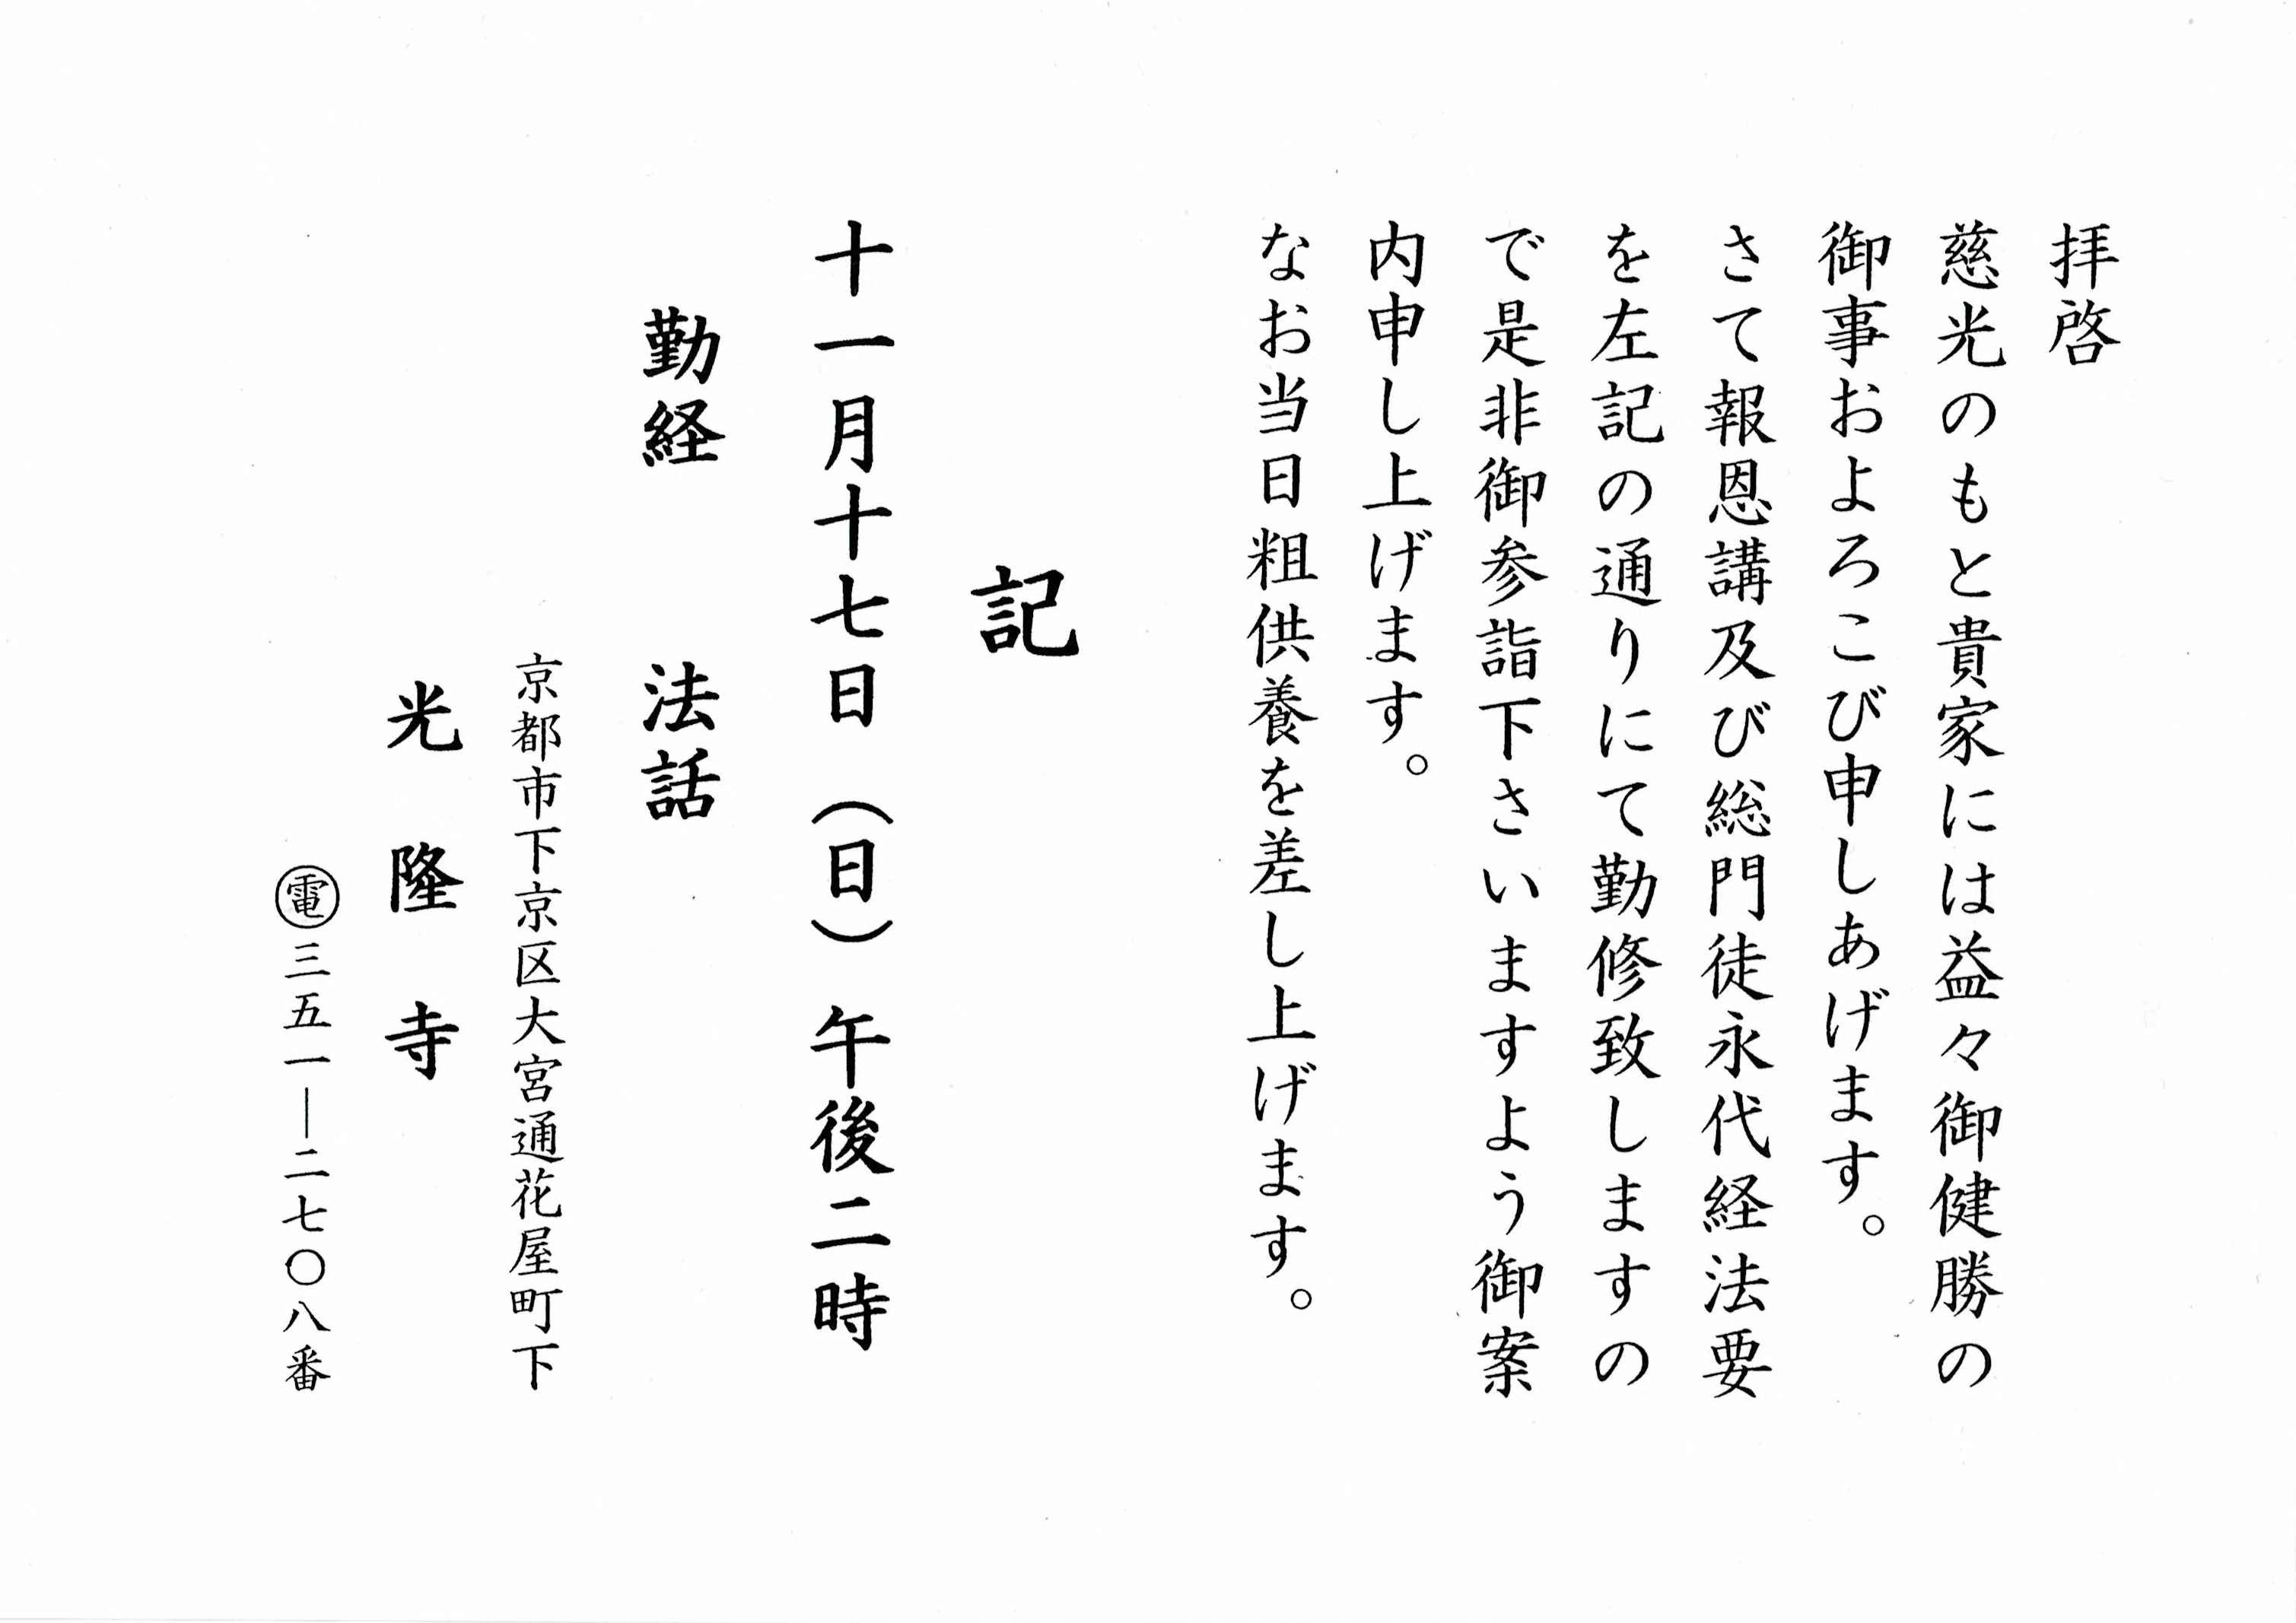 拝啓
慈光のもと貴家には益々御健勝の
御事およろこび申しあげます。
さて報恩講及び総門徒永代経法要
を左記の通りにて勤修致しますの
で是非御参詣下さいますよう御案
内申し上げます。
なお当日粗供養を差し上げます。
記
十一月十七日（日）午後二時
勤経　法話
京都市下京区大宮通花屋町下
光隆寺
㊡三五一―二七〇八番